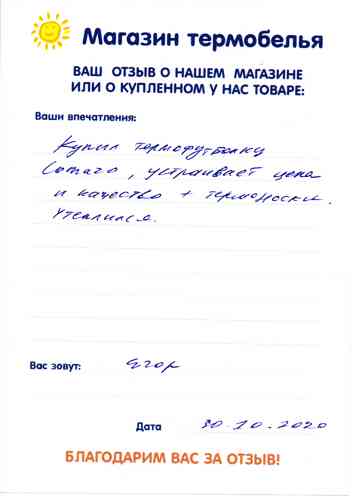 Магазин термобелья
ВАШ ОТЗЫВ О НАШЕМ МАГАЗИНЕ
ИЛИ О КУПЛЕННОМ У НАС ТОВАРЕ:
Ваши впечатления:
Купил термофутболку
, устраивает цена
и качество + термоноски.
Утеплился.
Вас зовут: Егор
Дата 30.10.2020
БЛАГОДАРИМ ВАС ЗА ОТЗЫВ!